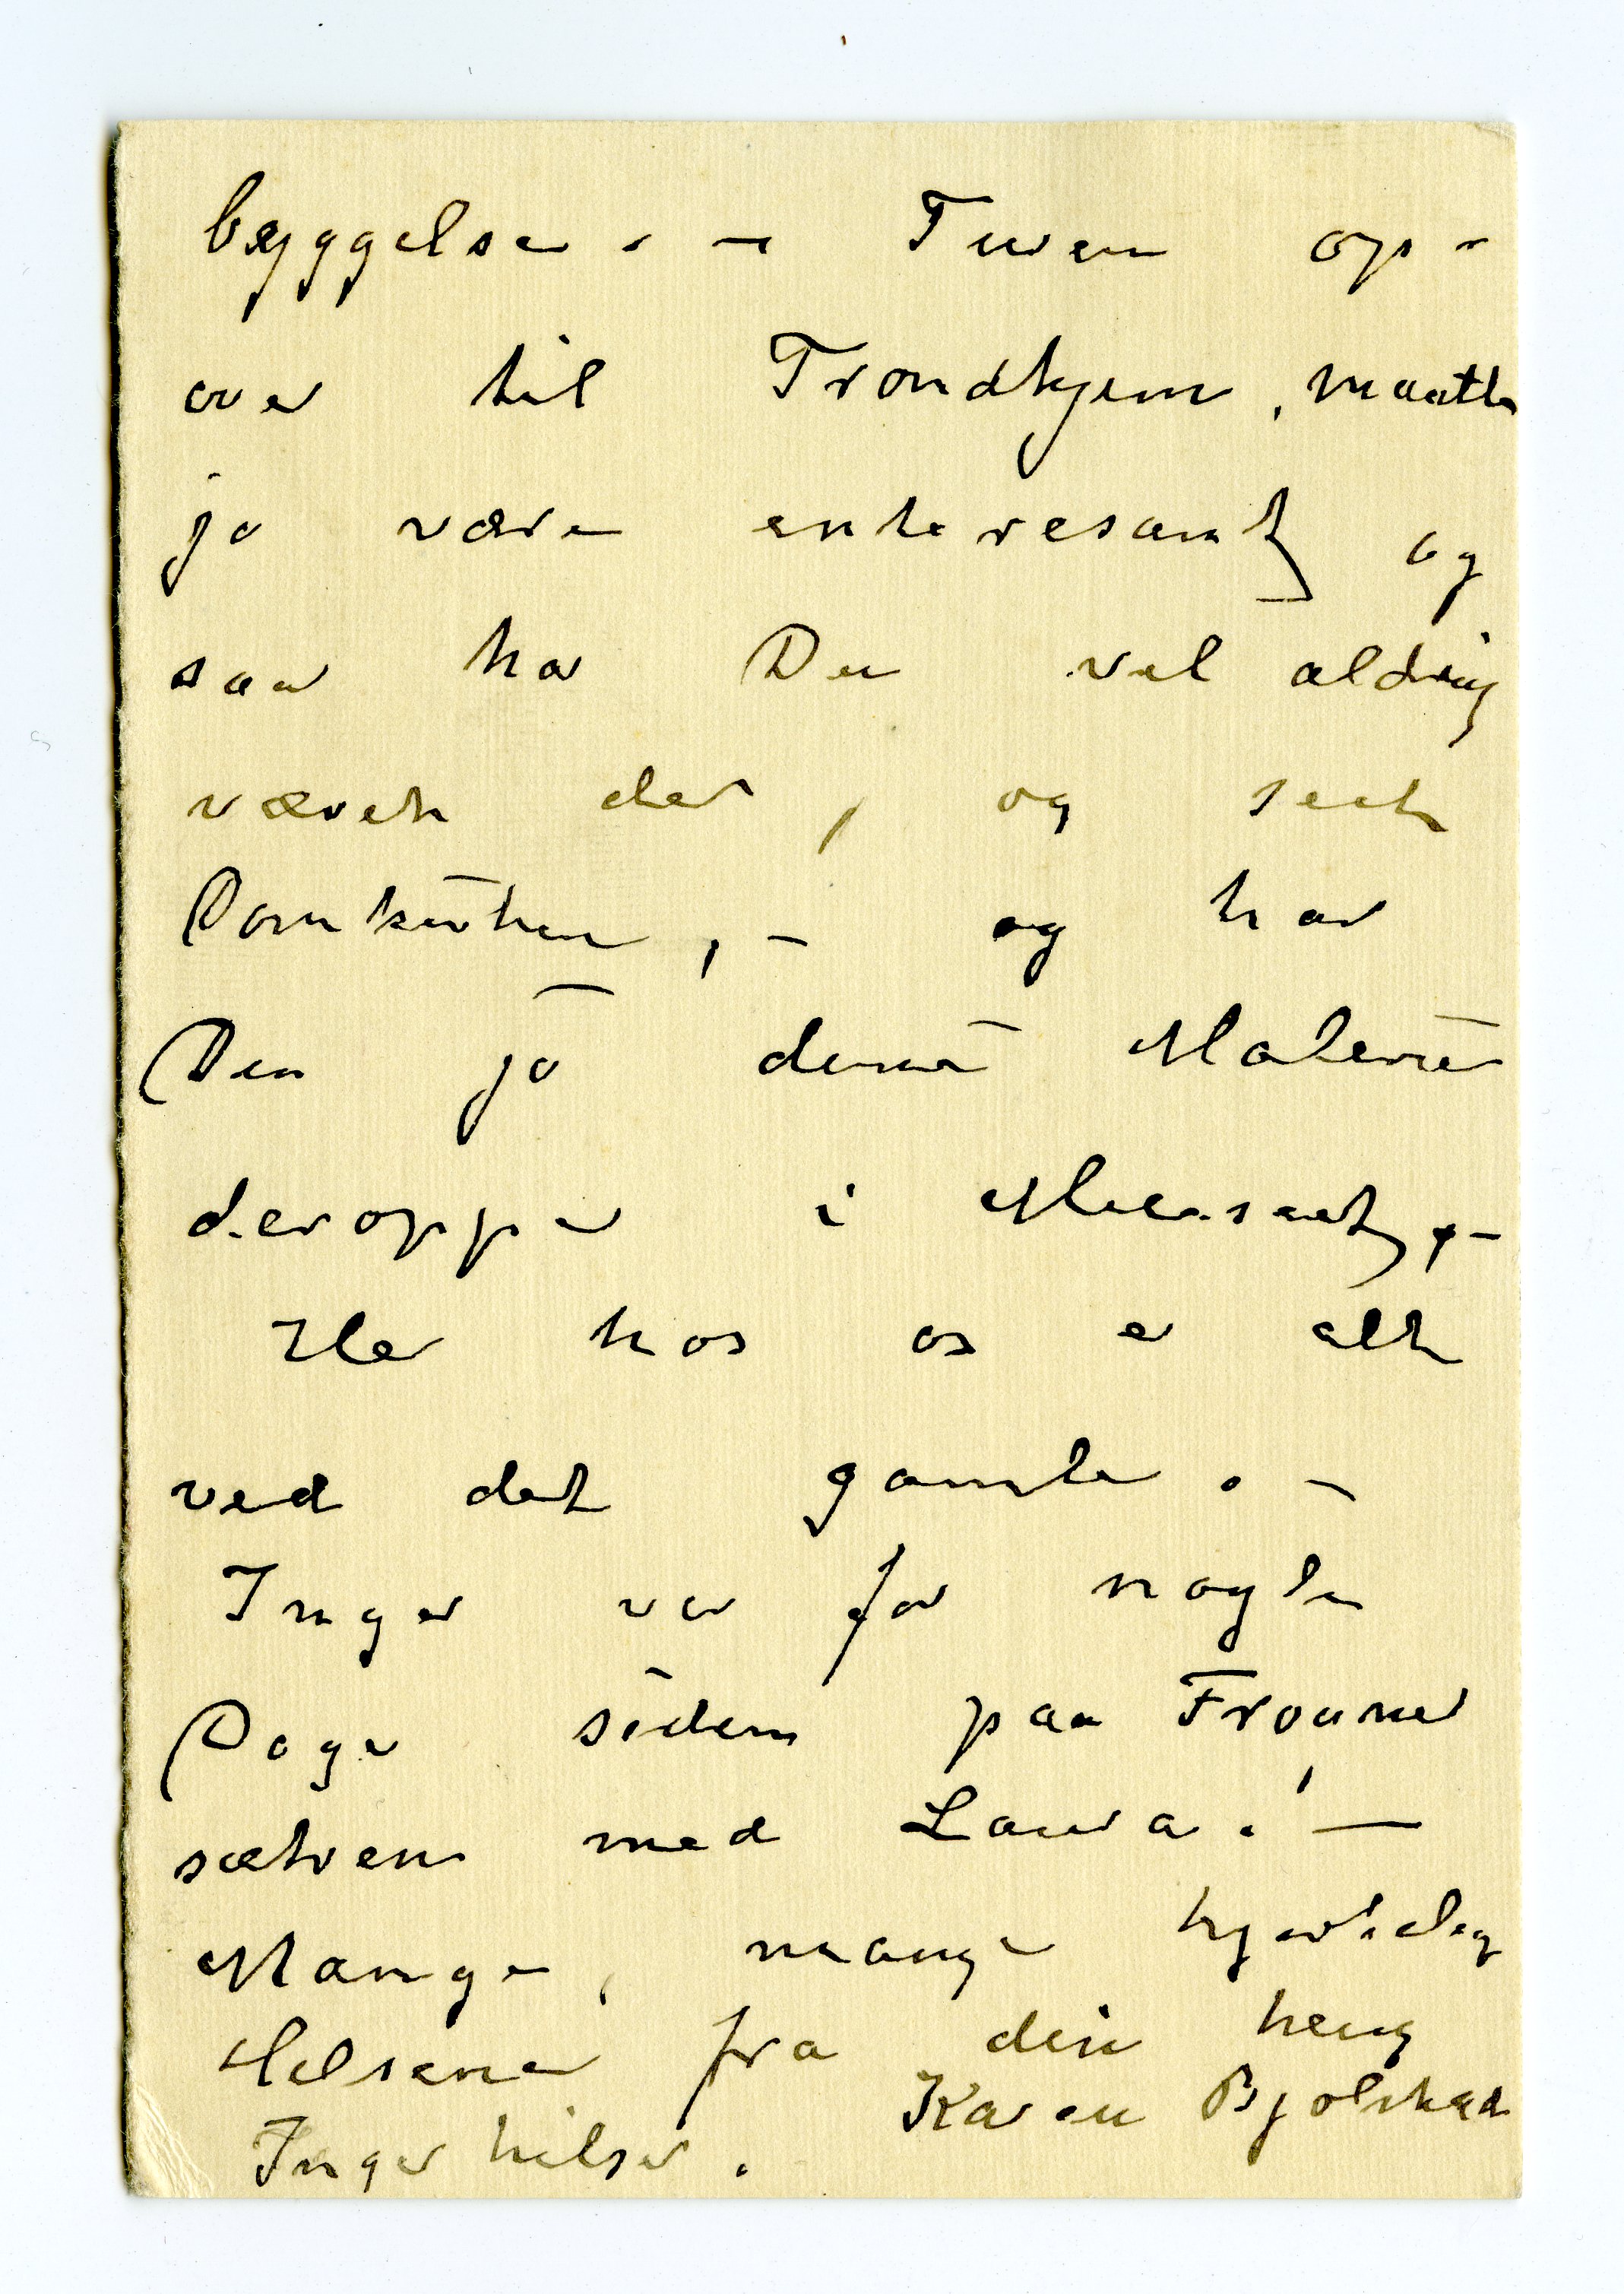 byggelse. – Turen op-
over til Trondhjem, maatte
jo være enteresant og
saa har Du vel aldrig
været der, og seet
Domkirken, – og har
Du jo dine Malerier
deroppe i Museet, –
Her hos os er alt
ved det gamle. –
Inger var for nogle
Dage siden paa Frogner
sætren med Laura. –
Mange, mange hjertelig
Helsener fra din heng
Karen Bjølstad
Inger hilser.